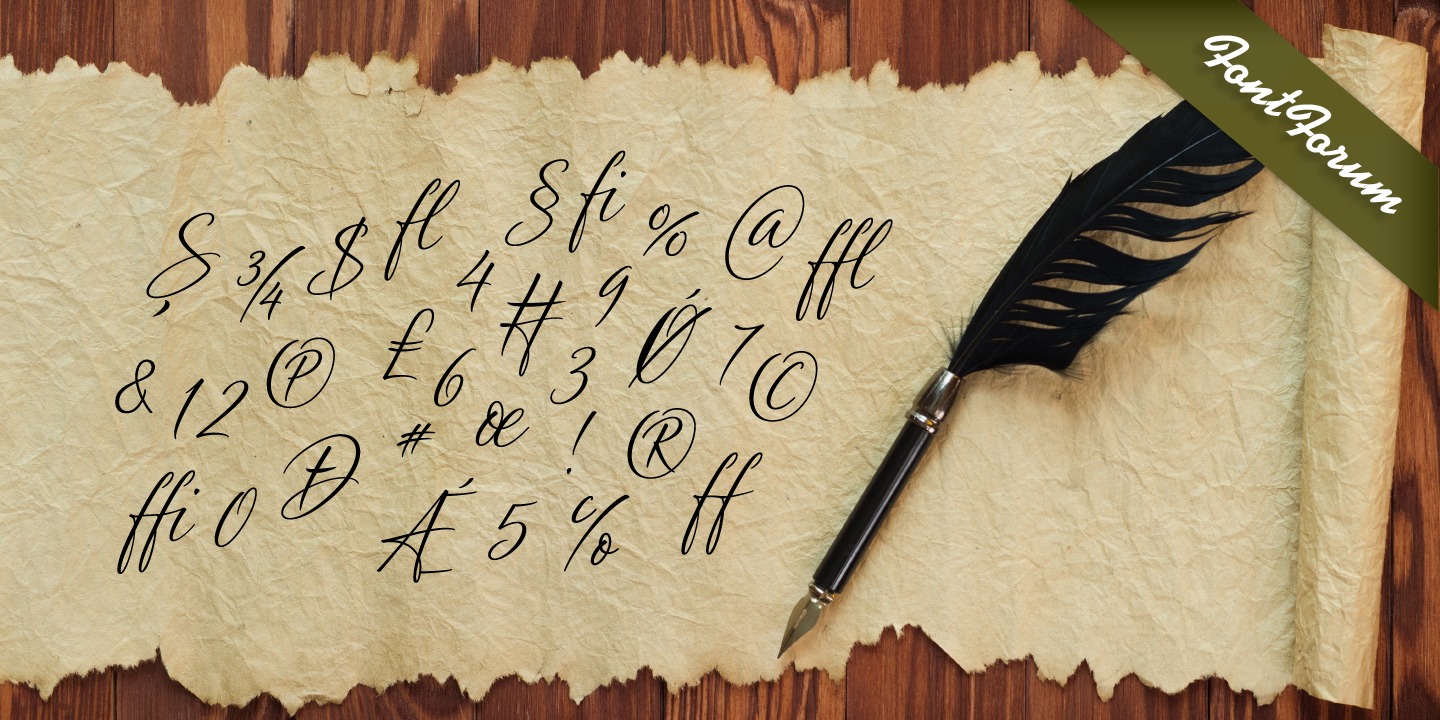 FontForum
§ fi
Ș ¾ $ fl 4 % @ ffl
H 9
& 1 2 Ⓟ £ 6 3 Ǿ 7 ©
# œ ! ®
ffi 0 Đ Ǽ 5 ℅ ff